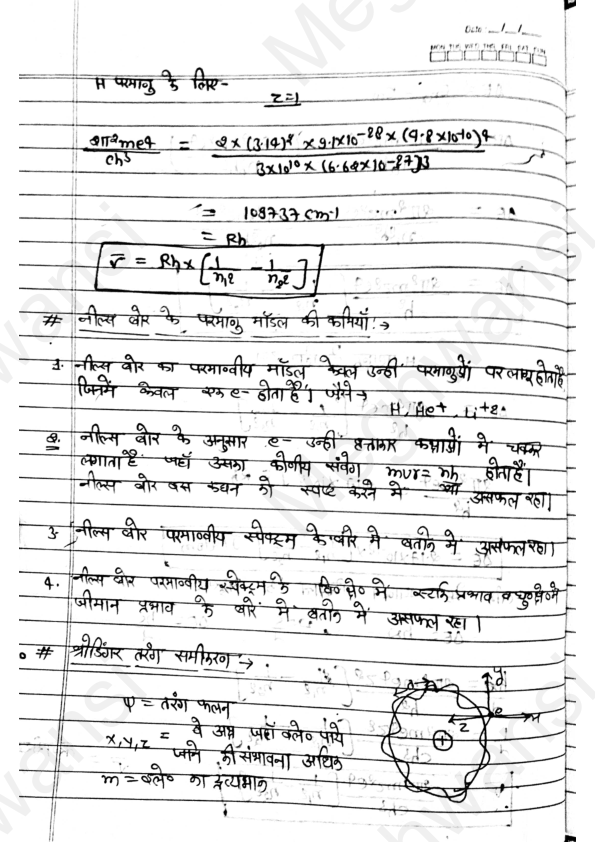 Date: __/__/__
MON TUE WED THU FRI SAT SUN
H परमाणु के लिए-
z=1
2π²me⁴/ch³ = 2 × (3.14)² × 9.1×10⁻²⁸ × (4.8×10⁻¹⁰)⁴ / 3×10¹⁰ × (6.62×10⁻²⁷)3
= 109737 cm-1
= Rh
v̅ = Rh × [1/n₁2 − 1/n₂2]
# नील्स बोर के परमाणु मॉडल की कमियाँ :→
1. नील्स बोर का परमाण्वीय मॉडल केवल उन्हीं परमाणुओं पर लागू होता है
जिनमें केवल एक e- होता है। जैसे→
H, He+, Li+2.
2. नील्स बोर के अनुसार e- उन्हीं वृत्ताकार कक्षाओं में चक्कर
लगाता है जहाँ उसका कोणीय संवेग mvr = nh/2π होता है।
नील्स बोर इस कथन को स्पष्ट करने में असफल रहा।
3. नील्स बोर परमाण्वीय स्पेक्ट्रम के बारे में बताने में असफल रहा।
4. नील्स बोर परमाण्वीय स्पेक्ट्रम के वि० क्षे० में स्टार्क प्रभाव व चु० क्षे० में
जीमान प्रभाव के बारे में बताने में असफल रहा।
# श्रोडिंगर तरंग समीकरण :→
ψ = तरंग फलन
x, y, z = वे अक्ष जहाँ इले० पाये
जाने की संभावना अधिक
m = इले० का द्रव्यमान
y
e
z
x
+
Meghwansi